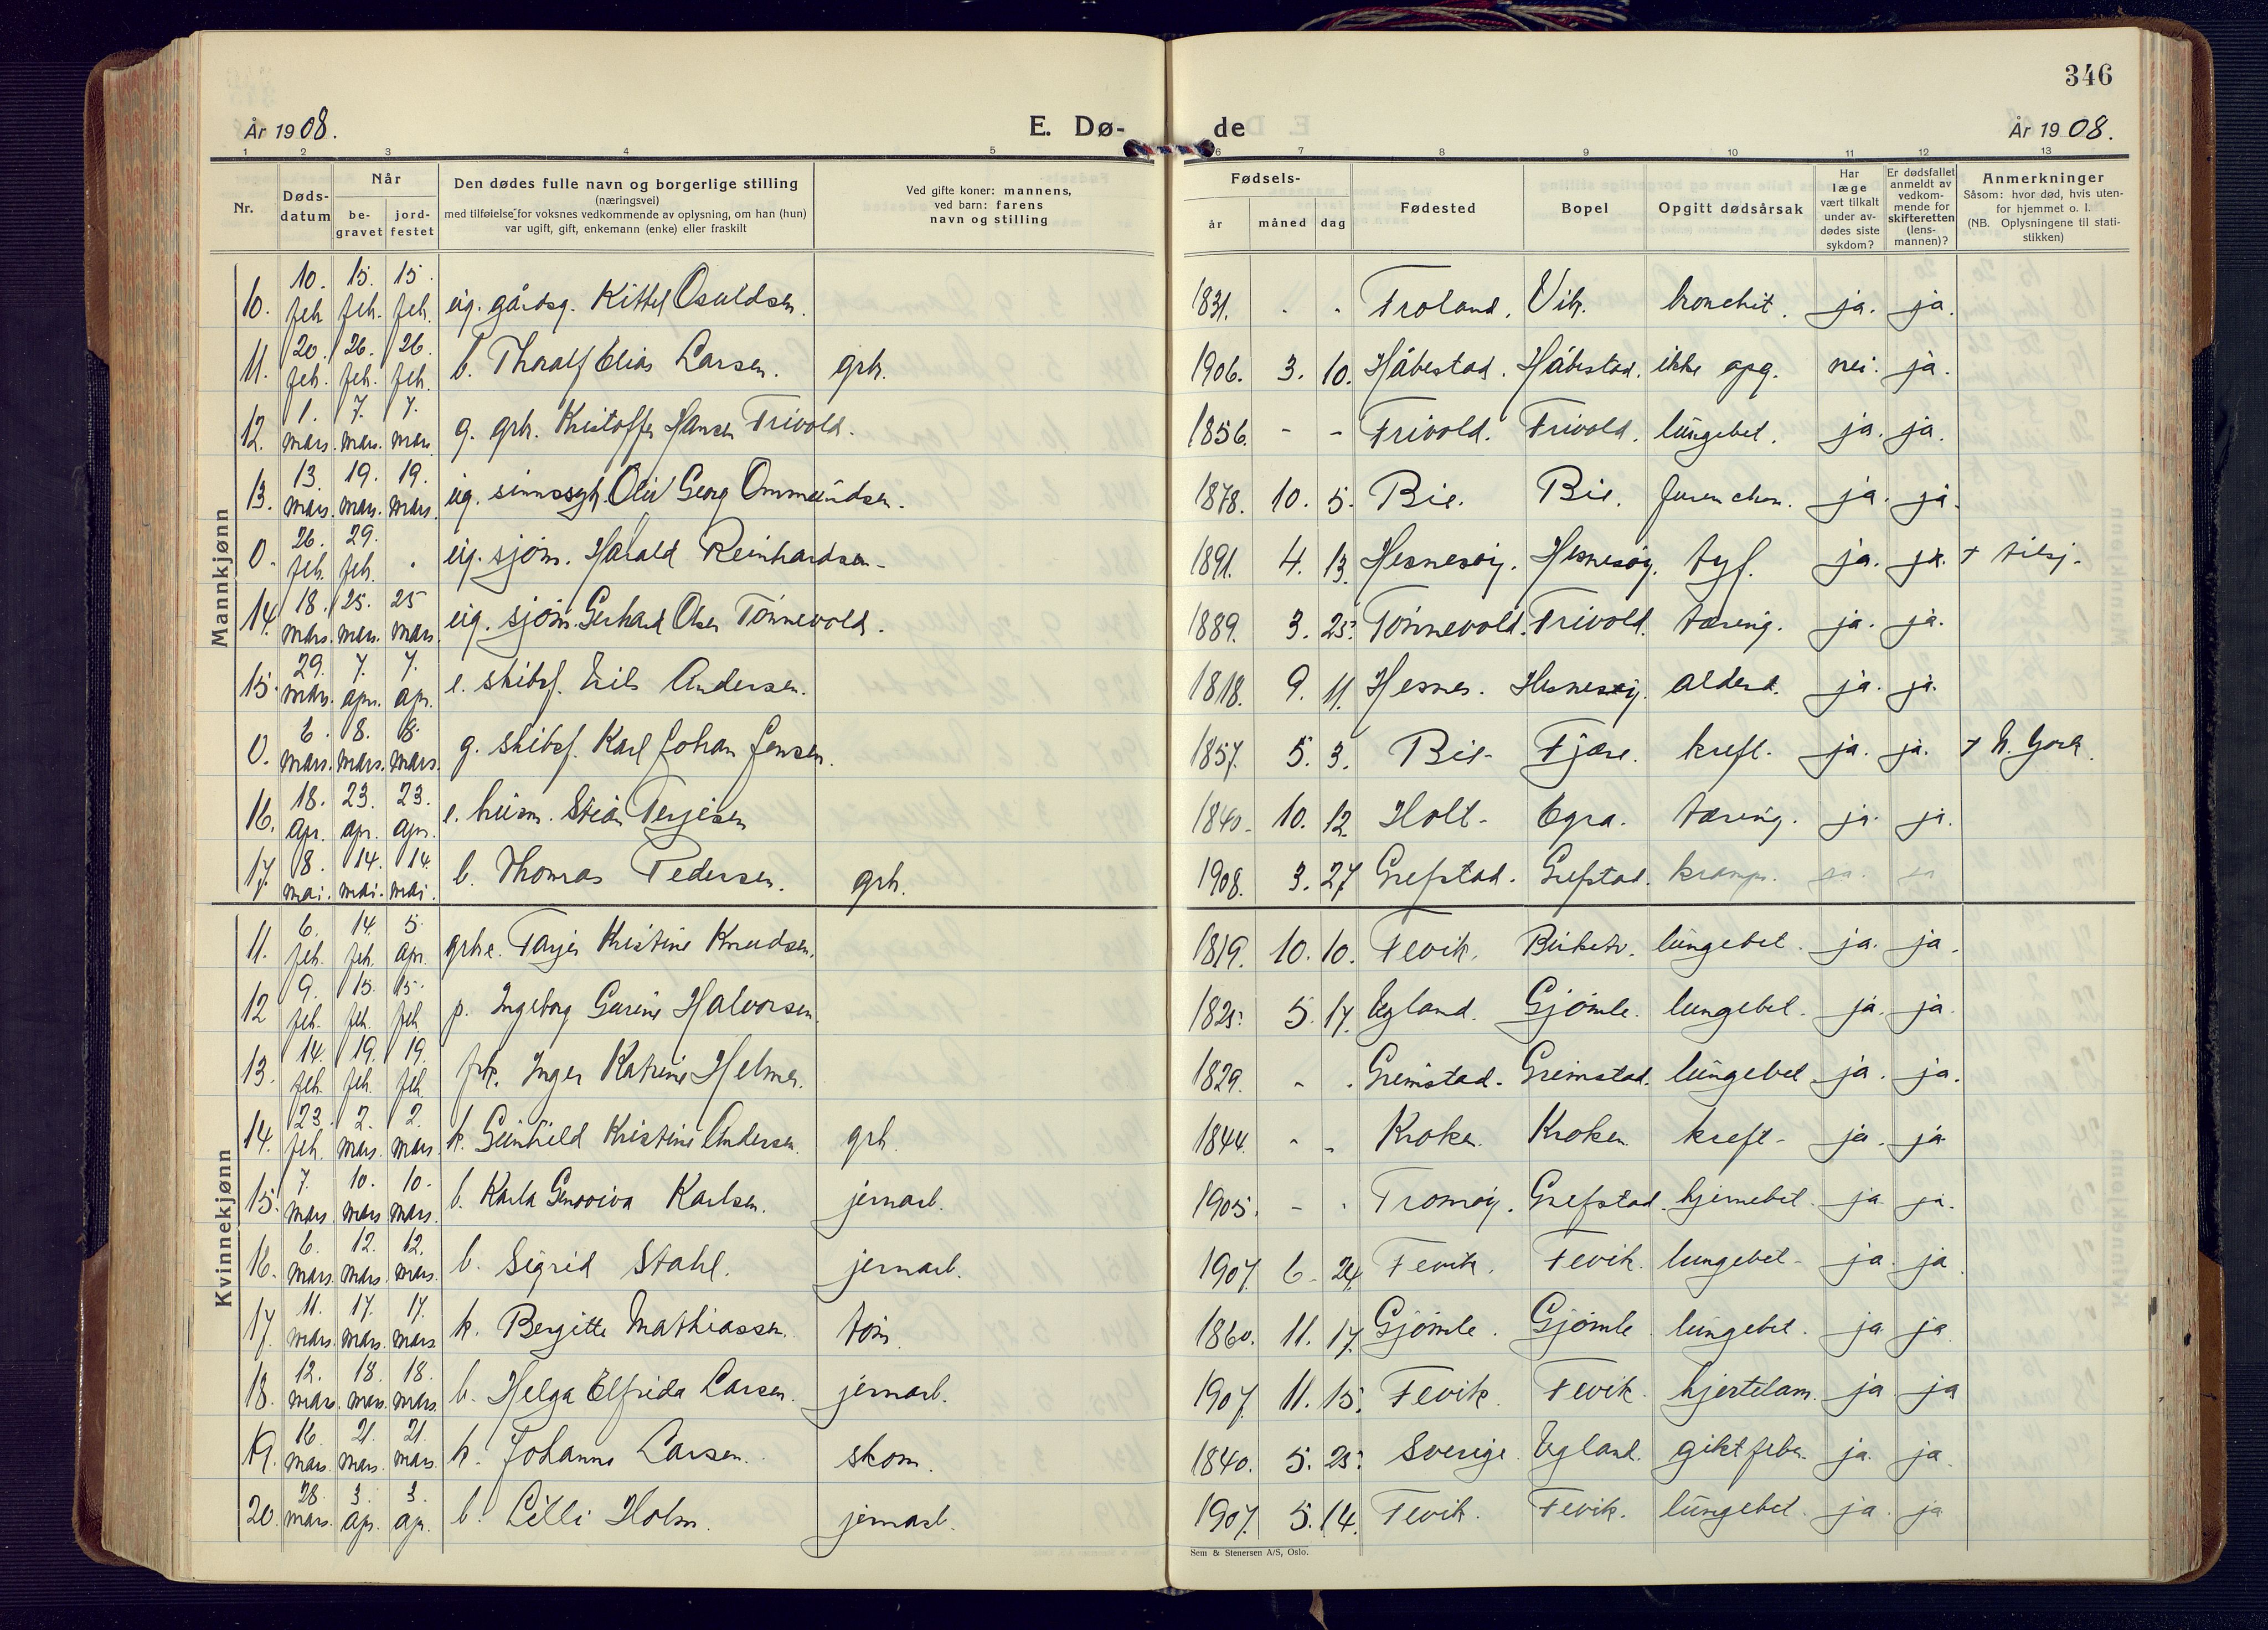 346
År 1908. E. Dø- de År 1908.
1 2 3 4 5 6 7 8 9 10 11 12 13
Nr. Døds-datum Når be-gravet jord-festet Den dødes fulle navn og borgerlige stilling (næringsvei) med tilføielse for voksnes vedkommende av oplysning, om han (hun) var ugift, gift, enkemann (enke) eller fraskilt Ved gifte koner: mannens, ved barn: farens navn og stilling Fødsels- år måned dag Fødested Bopel Opgitt dødsårsak Har læge vært tilkalt under av-dødes siste sykdom? Er dødsfallet anmeldt av vedkom-mende for skifteretten (lens-mannen)? Anmerkninger Såsom: hvor død, hvis uten-for hjemmet o. l. (NB. Oplysningene til stati-stikken)
Mannkjønn
10. 10. feb. 15. feb. 15. feb. ug. gårdsg. Kittel Osuldsen. 1831. - - Froland. Vik. bronchit. ja. ja.
11. 20. feb. 26. feb. 26. feb. b. Thoralf Elias Larsen. grb. 1906. 3. 10. Håbestad. Håbestad. ikke opg. nei. ja.
12. 1. mars. 7. mars. 7. mars g. grb. Kristoffer Hansen Trivold. 1856. - - Trivold. Trivold. lungebet. ja. ja.
13. 13. mars. 19. mars. 19. mars. ug. sinnssyk. Olav Georg Ommundsen. 1878. 10. 5. Bie. Bie. ja. ja.
0. 26. feb. 29. feb. - ug. sjøm. Harald Reinhardsen. 1891. 4. 13. Hesnesøy. Hesnesøy. tyf. ja. ja. + tilsj.
14. 18. mars. 25. mars. 25 mars ug. sjøm. Gerhard Olsen Tønnevold. 1889. 3. 25. Tønnevold. Trivold. tæring. ja. ja.
15. 29. mars. 7. apr. 7. apr. e. skibsf. Nils Andersen. 1818. 9. 11. Hesnes. Hesnesøy. alderd. ja. ja.
0. 6. mars. 8. mars. 8. mars. g. skibsf. Karl Johan Jensen. 1857. 5. 3. Bie. Fjære. kreft. ja. ja. + N. York.
16. 18. apr. 23. apr. 23. apr. e. husm. Stian Terjesen 1840. 10. 12 Holt. Egra. tæring. ja. ja.
17. 8. mai. 14. mai. 14. mai. b. Thomas Pedersen. grb. 1908. 3. 27 Grefstad. Grefstad. kramper. ja. ja
Kvinnekjønn
11. 6. feb. 14. feb. 5. apr. grbe. Tarjer Kristine Knudsen. 1819. 10. 10. Fevik. lungebet. ja. ja.
12 9. feb. 15. feb. 15. feb. p. Ingeborg Gurine Halvorsen. 1825. 5. 17. Egland. Gjømle. lungebet. ja. ja.
13. 14. feb. 19. feb. 19. feb. frk. Inger Katrine Helmer. 1829. - - Grimstad. Grimstad. lungebet ja. ja.
14. 23. feb. 2. mars. 2. mars. k. Gunhild Kristine Andersen. grb. 1844. - - Kroken. Kroken kreft. ja. ja
15. 7. mars. 10. mars 10. mars. b. Karla Genoviva Karlsen. jernarb. 1905. - - Tromøy. Grefstad. hjernebet. ja ja.
16. 6. mars. 12. mars. 12. mars. b. Sigrid Stahl. jernarb. 1907. 6. 24. Fevik. Fevik. lungebet. ja. ja.
17. 11. mars. 17. mars. 17. mars k. Bergitte Mathiassen. tøm. 1860. 11. 17. Gjømle. Gjømle lungebet. ja ja.
18. 12. mars. 18. mars. 18. mars b. Helga Elfrida Larsen. jernarb. 1907. 11. 15. Fevik. Fevik. hjertelam. ja ja
19. 16. mars. 21. mars. 21. mars. k. Johanne Larsen. skom. 1840. 5. 25. Sverige. Egland. giktfeber. ja. ja.
20. 28. mars. 3. apr. 3. apr. b. Lilli Holm. jernarb. 1907. 5. 14. Fevik. Fevik. lungebet. ja. ja
Sem & Stenersen A/S, Oslo.